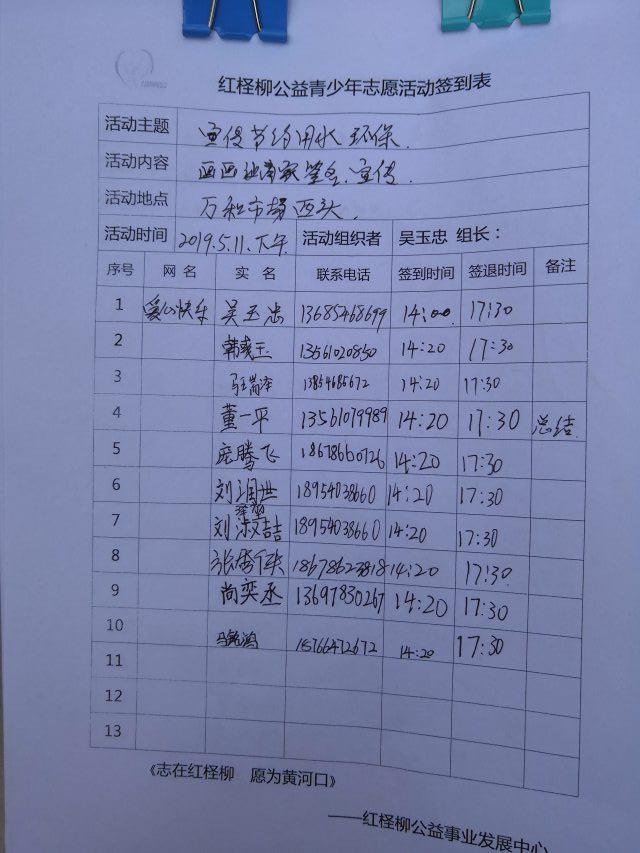 红柽柳公益青少年志愿活动签到表
活动主题 宣传节约用水 环保.
活动内容 宣传.
活动地点 万和市场西头.
活动时间 2019.5.11.下午 活动组织者 吴玉忠 组长：
序号 网 名 实 名 联系电话 签到时间 签退时间 备注
1 爱心快车 吴玉忠 13685468699 14:00. 17:30
2 13561020850 14:20 17:30
3 13864685672 14:20 17:30
4 董一平 13561079989 14:20 17:30 总结
5 庞腾飞 18678660726 14:20 17:30
6 刘润世 18954038660 14:20 17:30
7 刘 18954038660 14:20 17:30
8 张 18678623818 14:20 17:30
9 尚奕丞 13697830267 14:20 17:30
10 马 15766472672 14:20 17:30
11
12
13
《志在红柽柳 愿为黄河口》
——红柽柳公益事业发展中心